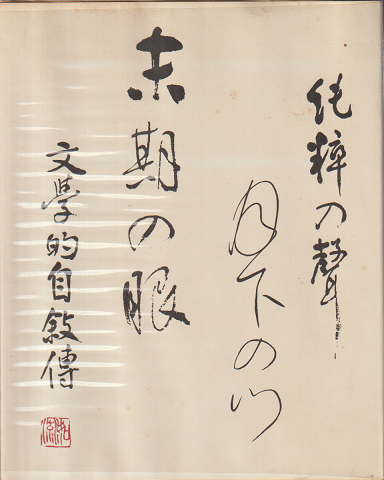 純粹の聲
月下の門
末期の眼
文學的自敍傳